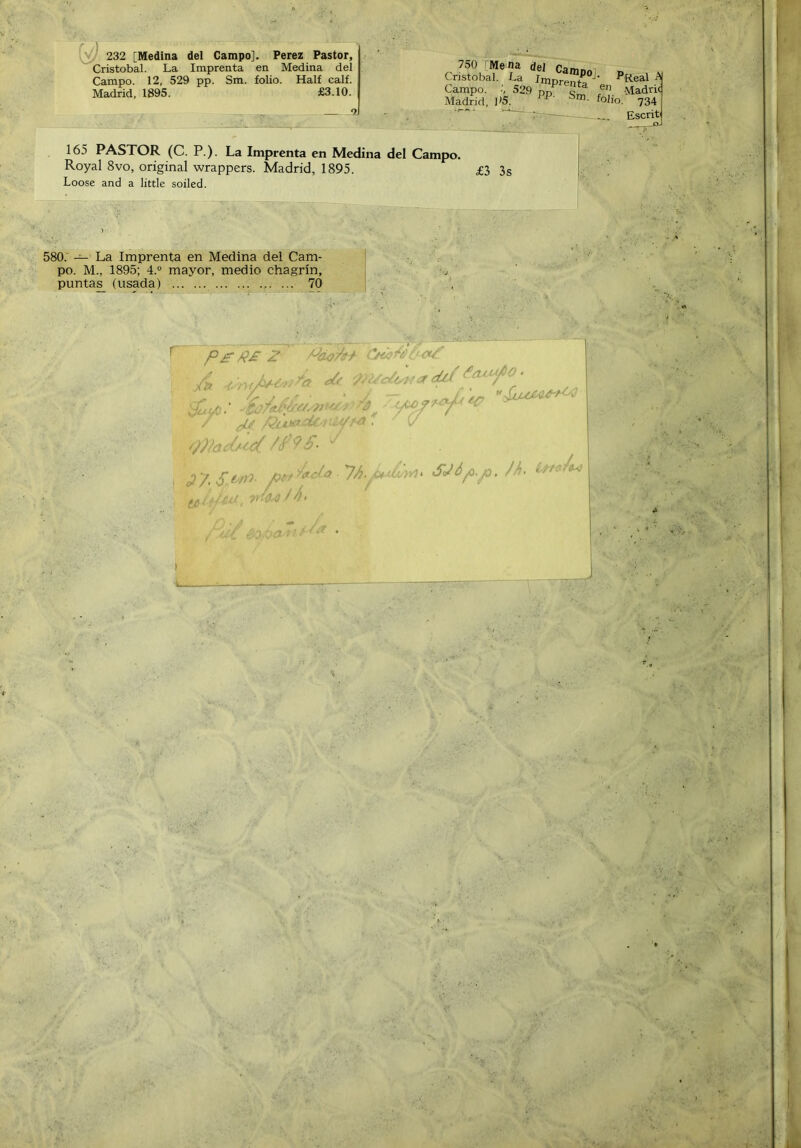 232 [Medina del Campo]. Perez Pastor,
Cristobal. La Imprenta en Medina del
Campo. 12, 529 pp. Sm. folio. Half calf.
Madrid, 1895. £3.10.
750 [Me na del Campo].
Cristobal. La Imprenta en
Campo. 529 pp. Sm. folio.
Madrid,
PReal A
Madrid
734
Escrit
165 PASTOR (C. P.). La Imprenta en Medina del Campo.
Royal 8vo, original wrappers. Madrid, 1895. £3 3s
Loose and a little soiled.
580. — La Imprenta en Medina del Cam-
po. M., 1895; 4.º mayor, medio chagrín,
puntas (usada) ... ... ... ... ... ... 70
PEREZ Pastor Cristóbal
La imprenta de Medina del Campo.
Establecimiento tipográfico "Sucesores
de Rivadeneyra".
Madrid 1895.
27.5 cm. portada 1h. 526 p.p. 1h.